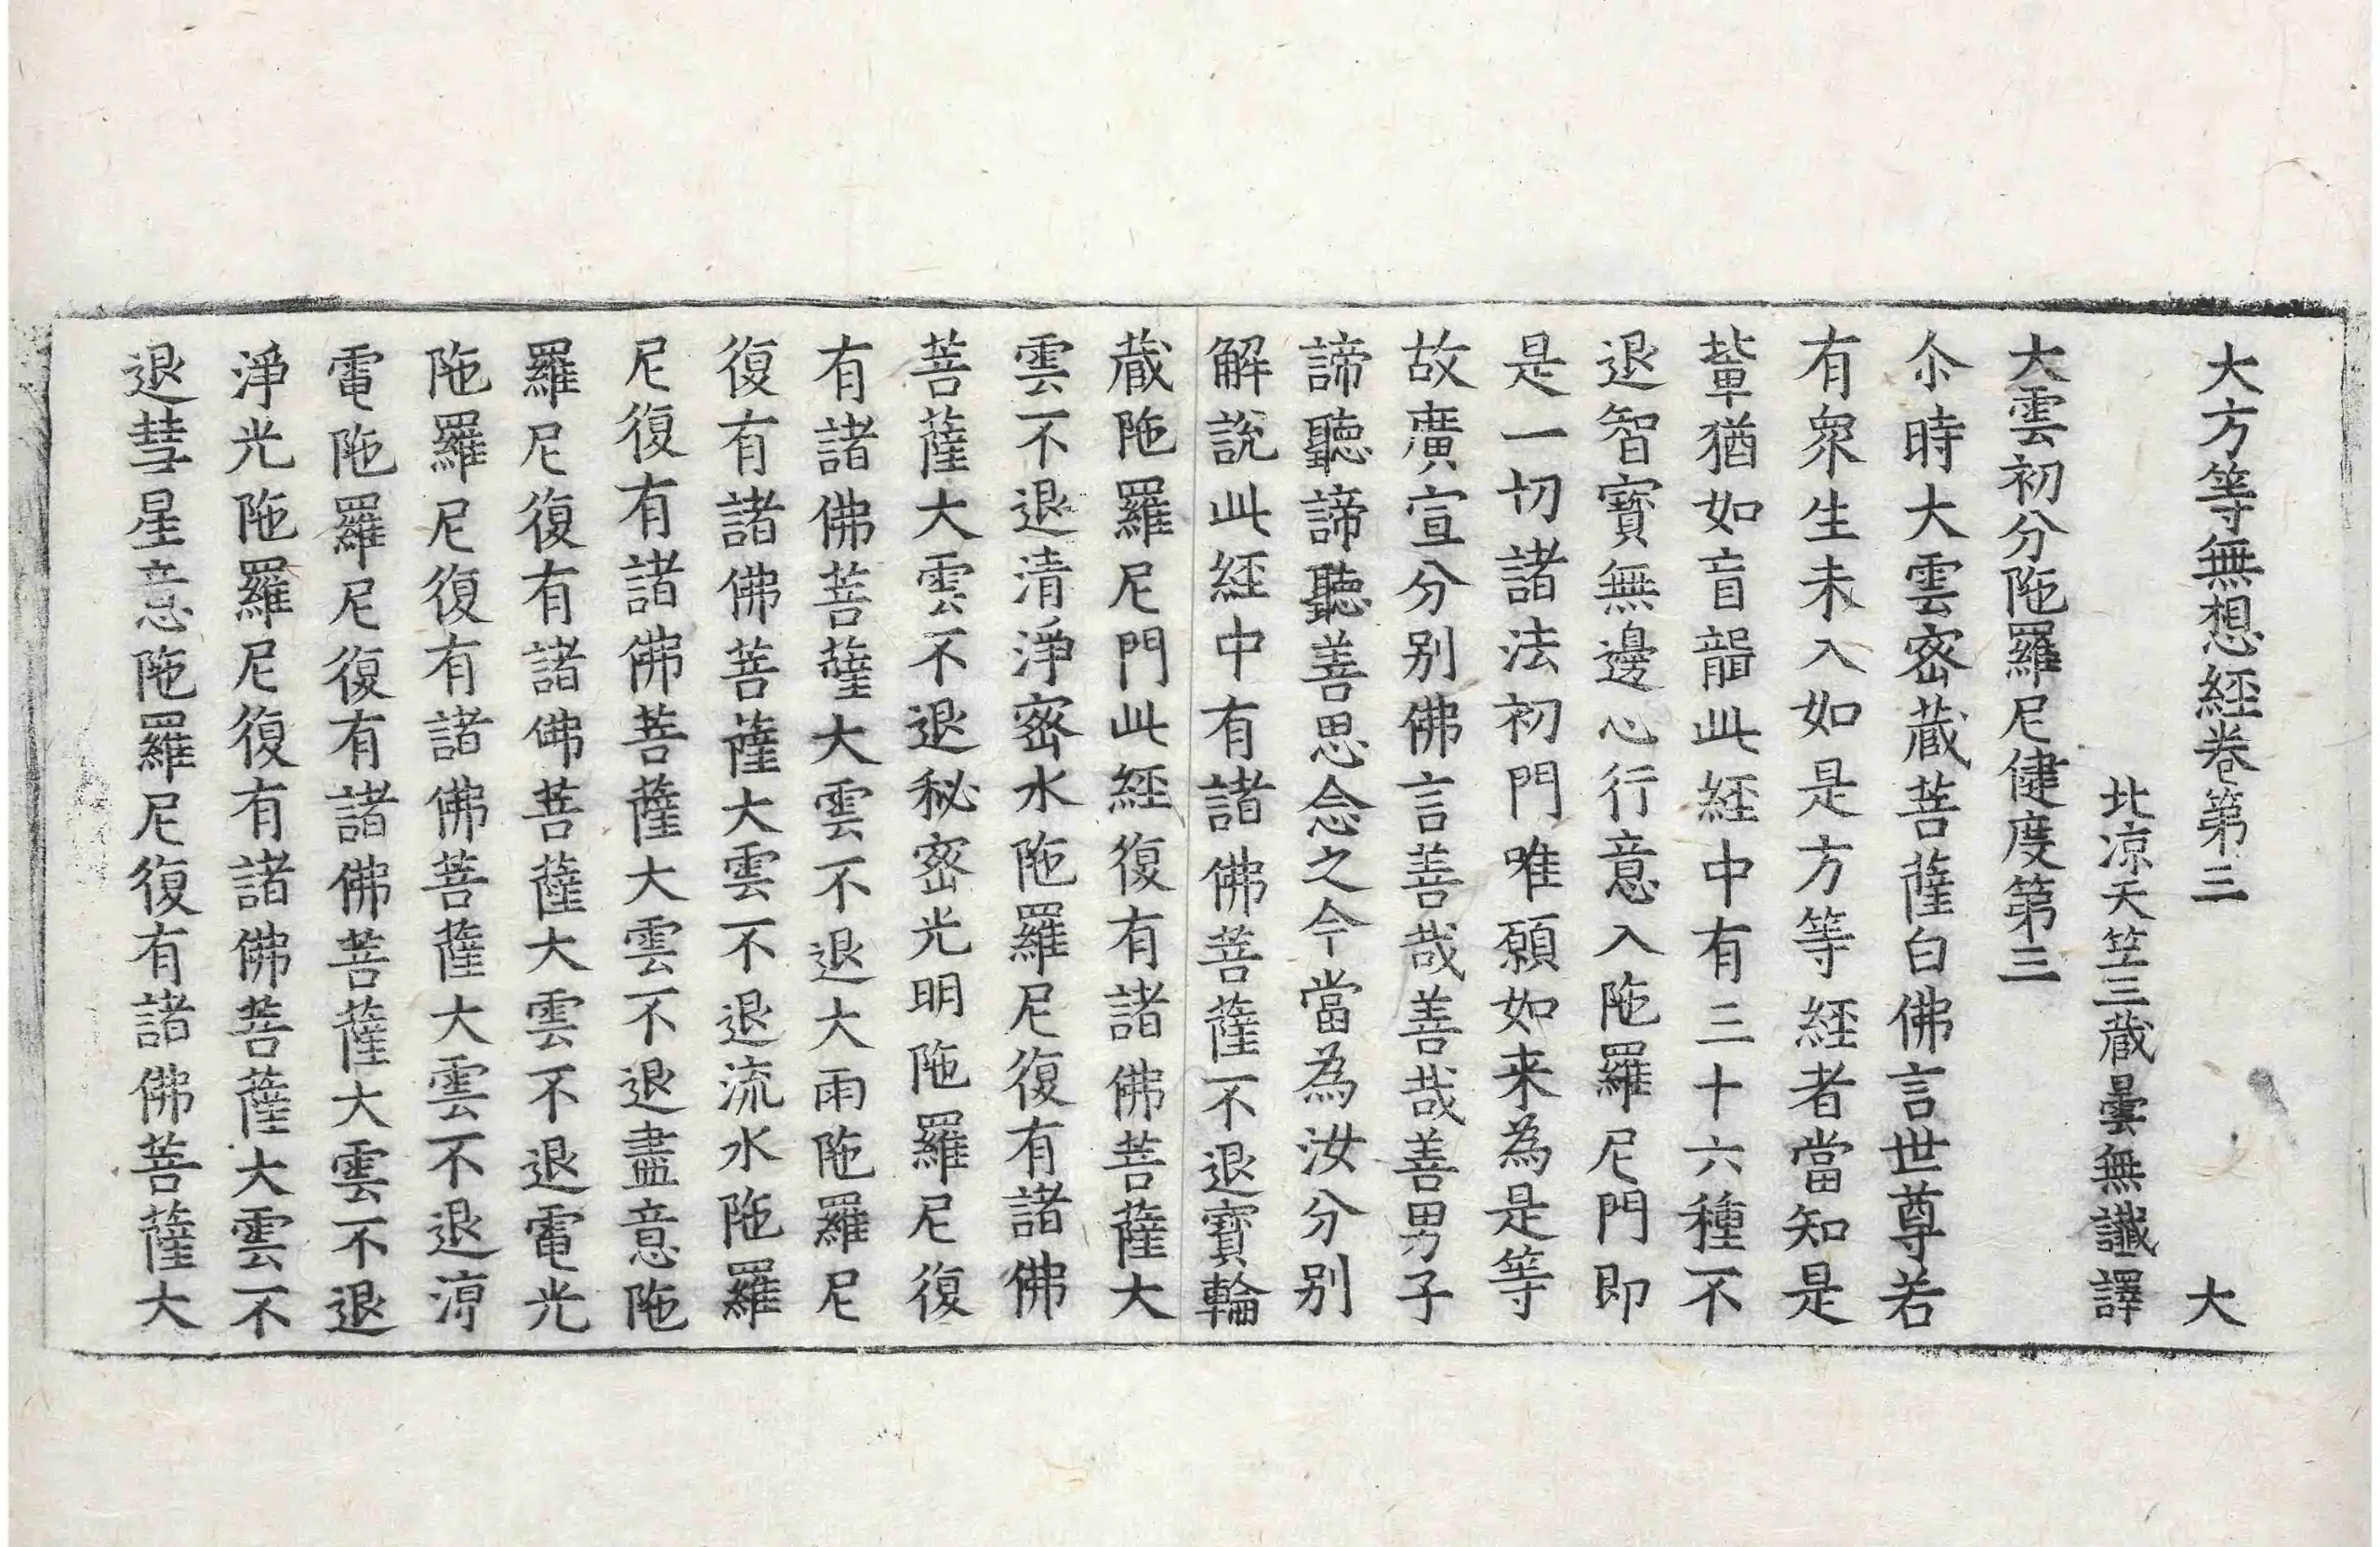 大方等無想經卷第三 大
北涼天竺三藏曇無讖譯
大雲初分陁羅尼健度第三
尒時大雲密藏菩薩白佛言世尊若
有衆生未入如是方等經者當知是
輩猶如盲龍此經中有三十六種不
退智寶無邊心行意入陁羅尼門即
是一切諸法初門唯願如来為是等
故廣宣分别佛言善哉善哉善男子
諦聽諦聽善思念之今當為汝分别
解說此經中有諸佛菩薩不退寶輪
藏陁羅尼門此經復有諸佛菩薩大
雲不退清淨密水陁羅尼復有諸佛
菩薩大雲不退秘密光明陁羅尼復
有諸佛菩薩大雲不退大雨陁羅尼
復有諸佛菩薩大雲不退流水陁羅
尼復有諸佛菩薩大雲不退盡意陁
羅尼復有諸佛菩薩大雲不退電光
陁羅尼復有諸佛菩薩大雲不退渟
電陁羅尼復有諸佛菩薩大雲不退
淨光陁羅尼復有諸佛菩薩大雲不
退彗星意陁羅尼復有諸佛菩薩大